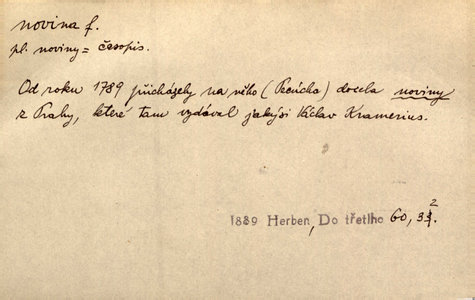 novina f.
pl. noviny = časopis.
Od roku 1789 přicházely na něho (Pecúcha) docela noviny
z Prahy, které tam vydával jakýsi Václav Kramerius.
1889 Herben, Do třetího 60, 32.